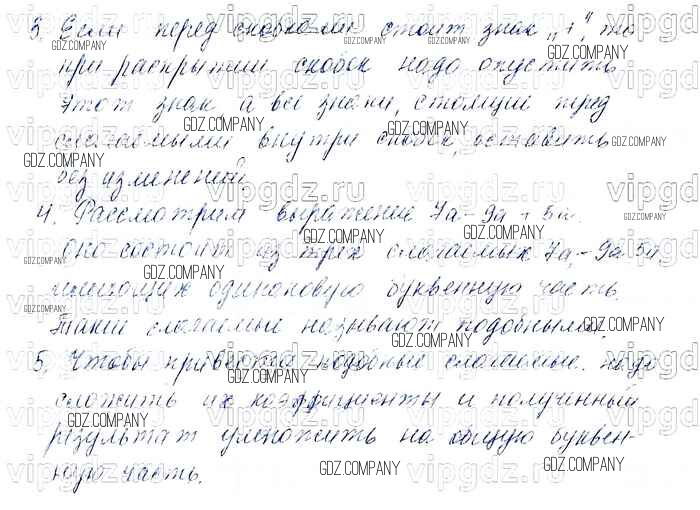 3. Если перед скобками стоит знак „+“, то
при раскрытии скобок надо опустить
этот знак, а все знаки, стоящие перед
слагаемыми внутри скобок, оставить
без изменений.
4. Рассмотрим выражение 7а - 9а + 5а.
Оно состоит из трех слагаемых 7а, -9а 5а,
имеющих одинаковую буквенную часть.
Такие слагаемые называют подобными.
5. Чтобы привести подобные слагаемые, надо
сложить их коэффициенты и полученный
результат умножить на общую буквен-
ную часть.